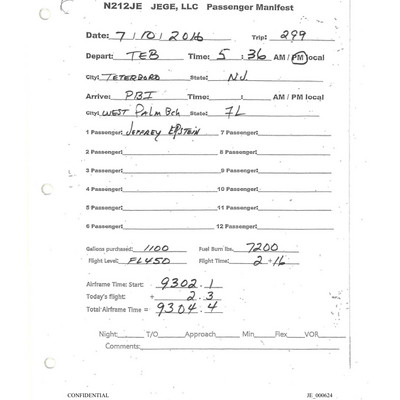 N212JE JEGE, LLC Passenger Manifest
Date: 7/10/2016 Trip: 299
Depart: TEB Time: 5 : 36 AM / PM local
City: TETERBORO State: NJ
Arrive: PBI Time: : AM / PM local
City: WEST Palm Bch State: FL
1 Passenger: JEFFREY EPSTEIN 7 Passenger:
2 Passenger: 8 Passenger:
3 Passenger: 9 Passenger:
4 Passenger: 10 Passenger:
5 Passenger: 11 Passenger:
6 Passenger: 12 Passenger:
Gallons purchased: 1100 Fuel Burn lbs. 7200
Flight Level: FL450 Flight Time: 2 + 16
Airframe Time: Start: 9302 . 1
Today's flight: + 2 . 3
Total Airframe Time = 9304 . 4
Night: T/O Approach Min Flex VOR
Comments:
CONFIDENTIAL JE_000624